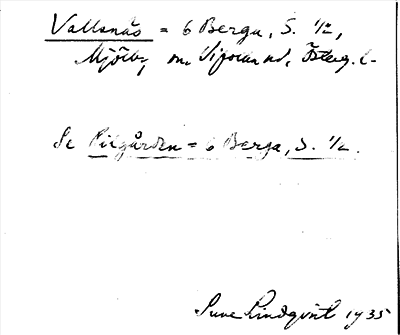 Vallsnäs = 6 Berga, S. 1/2,
Mjölby, Österg. l.
Se Pilgården = 6 Berga, S. 1/2.
Sune Lindqvist 1935